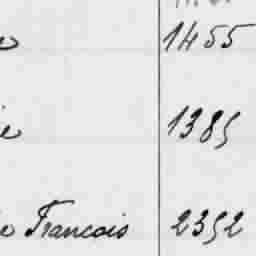 1455
1385
Francois 2352